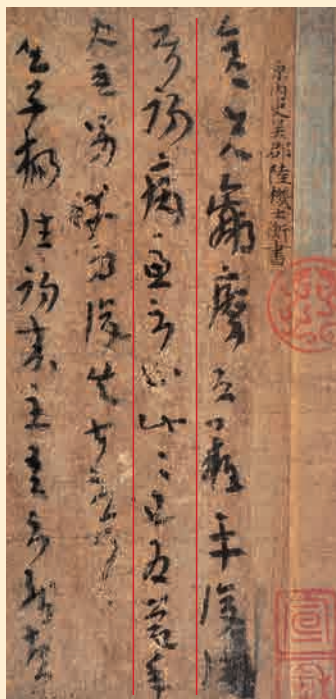 晉內史吳郡陸機士衡書
彥先羸瘵恐難平復往屬
初病慮不止此〻已為慶承
使唯男幸為復失前憂耳
吳子楊往初來主吾不能盡